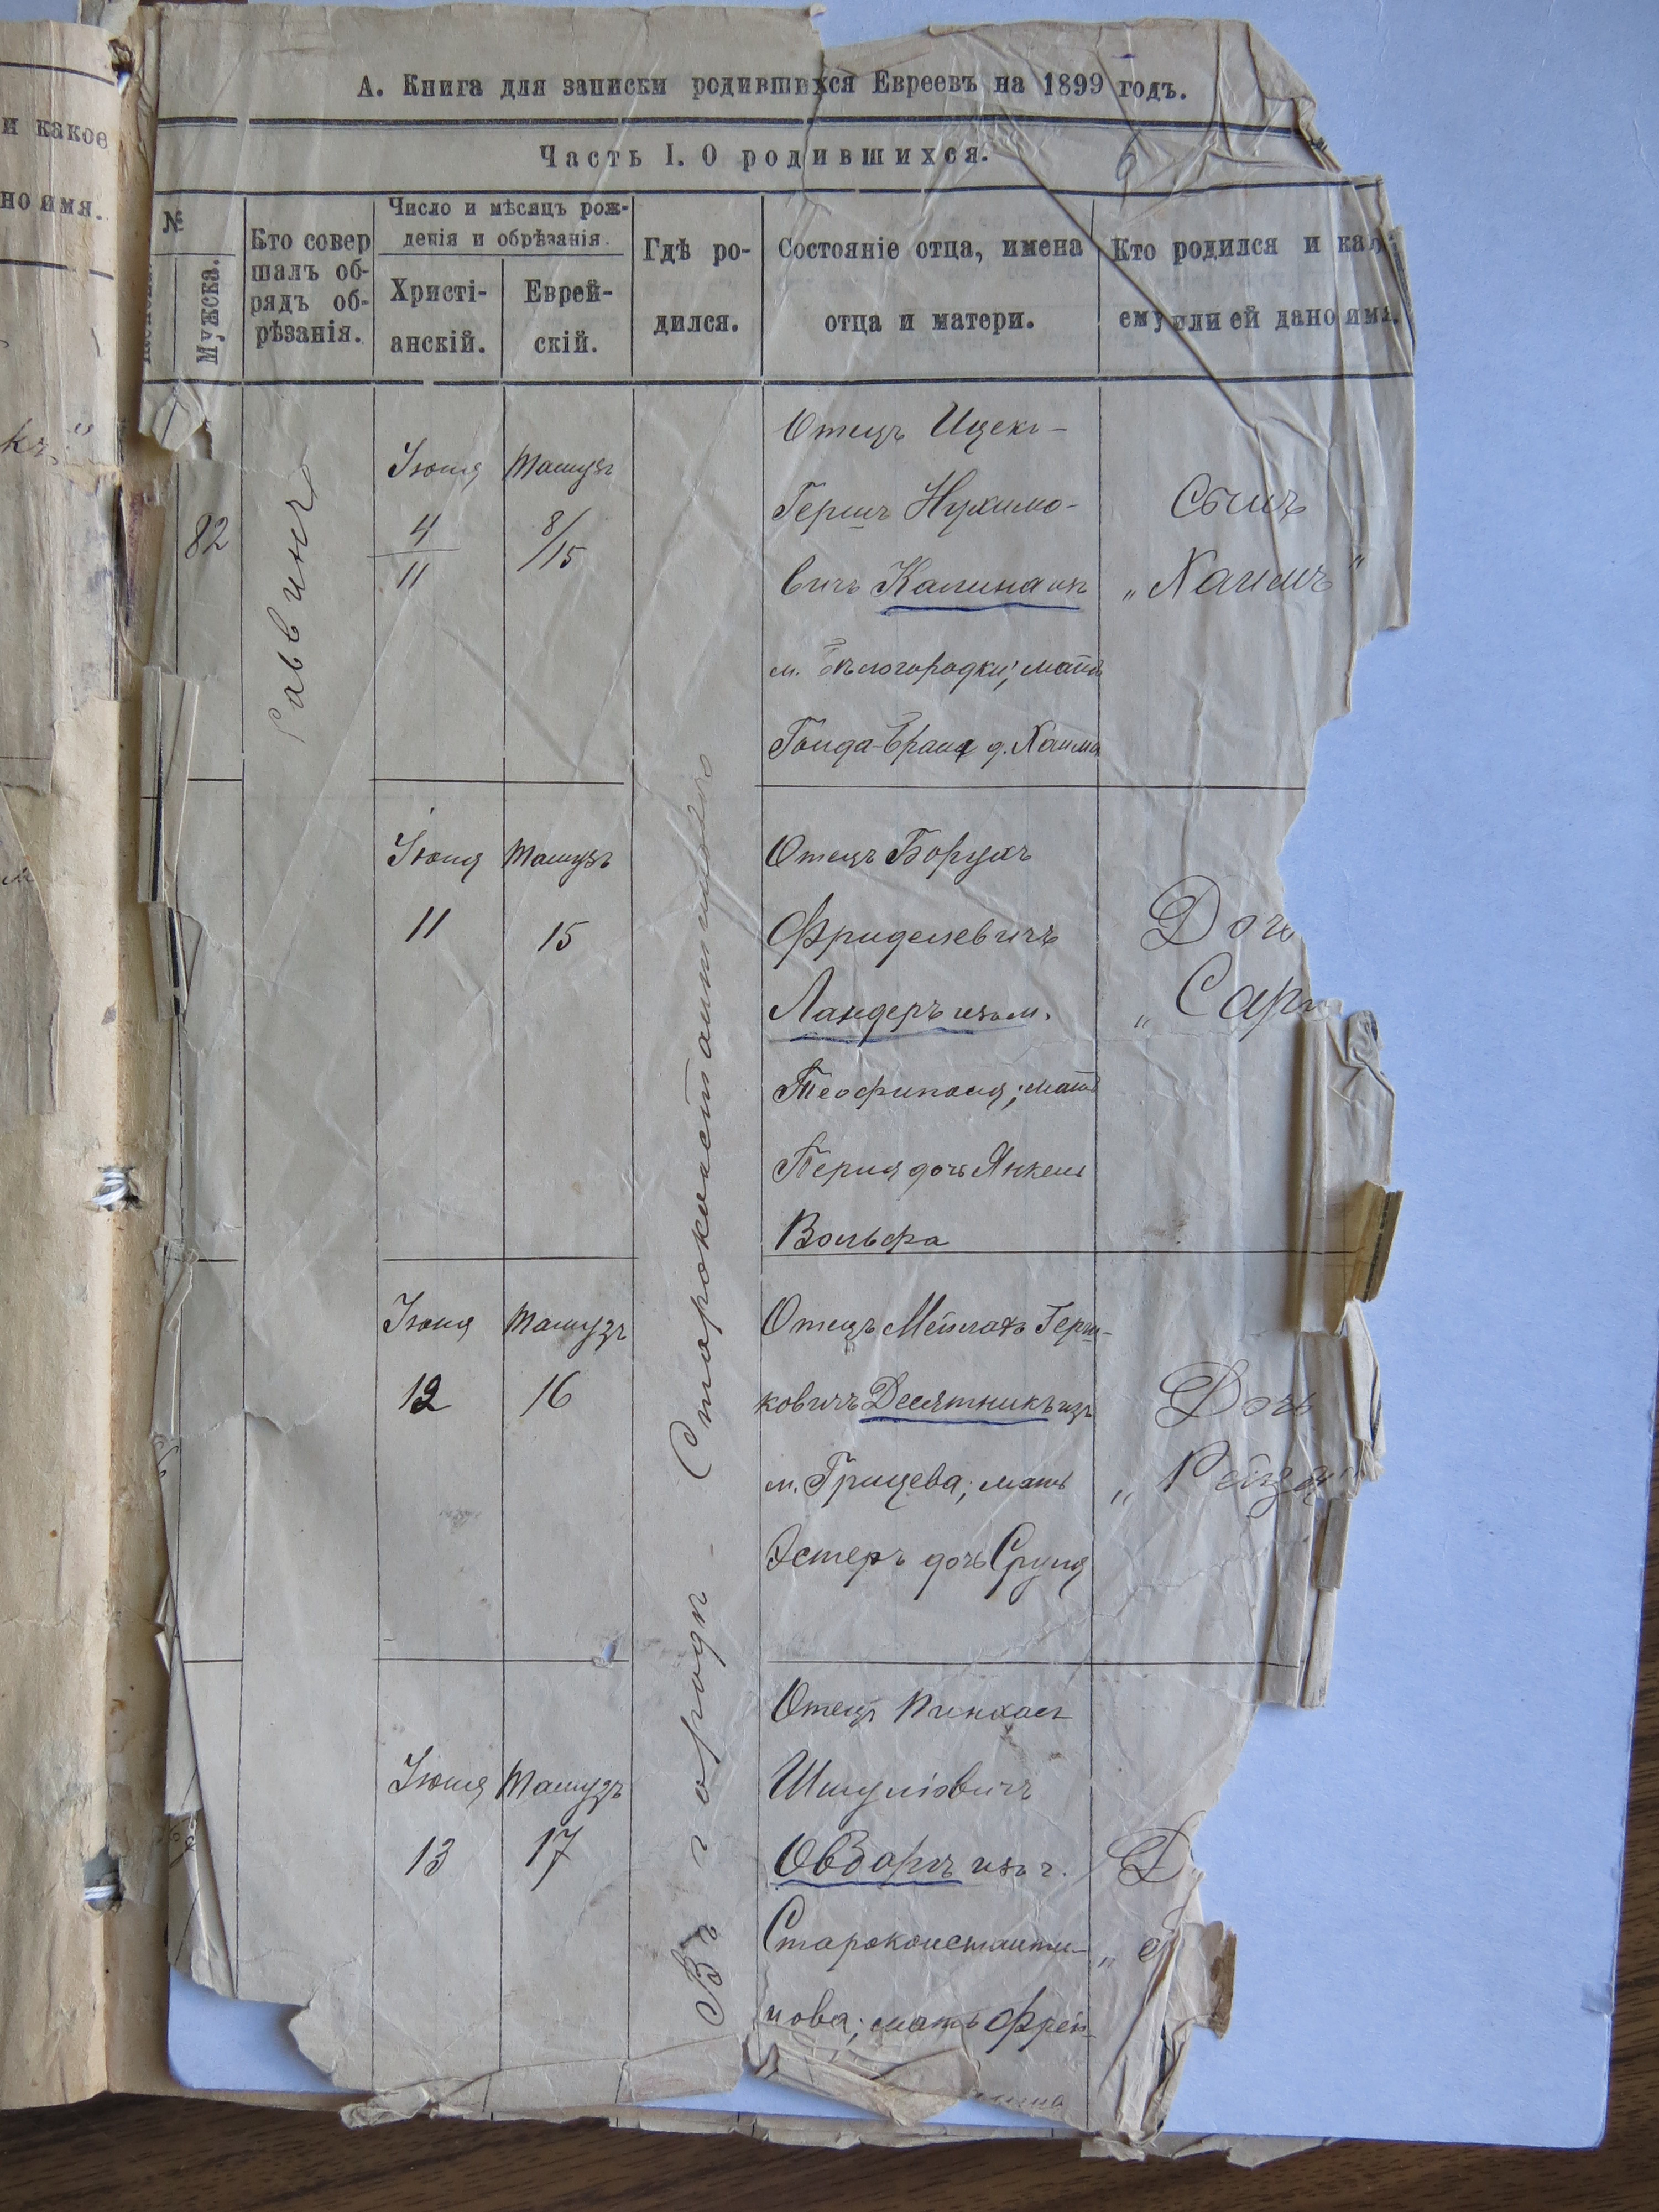 и какое
но имя.
А. Книга для записки родившихся Евреевъ на 1899 годъ.
Часть I. О родившихся.
6
№
Мужска.
Кто совер
шалъ об-
рядъ об-
рѣзанія.
Число и мѣсяцъ рож-
денія и обрѣзанія.
Христі-
анскій.
Еврей-
скій.
Гдѣ ро-
дился.
Состояніе отца, имена
отца и матери.
Кто родился и как
ему или ей дано имя.
82
Раввинъ
Іюня
4
11
Тамузъ
8/15
Въ городѣ Староконстантиновѣ
Отецъ Ицекъ-
Гершъ Нухимо-
вичъ Калина изъ
м. Бѣлогородки; мать
д. Хаима
Сынъ
„Хаимъ"
Іюня
11
Тамузъ
15
Отецъ Борухъ
Фриделевичъ
Ландеръ изъ м.
Теофиполя; мать
Перля дочь Янкеля
Вольфа
Доч
„Сар
Іюня
12
Тамузъ
16
Отецъ Мейлахъ Герш-
ковичъ Десятникъ изъ
м. Грицева; мать
Эстеръ дочь Сруля
Дочь
„Рейзя"
Іюня
13
Тамузъ
17
Отецъ Пинхасъ
Шмулiовичъ
Овзаръ изъ г.
Староконстанти-
нова; мать Фрей-
Д
„